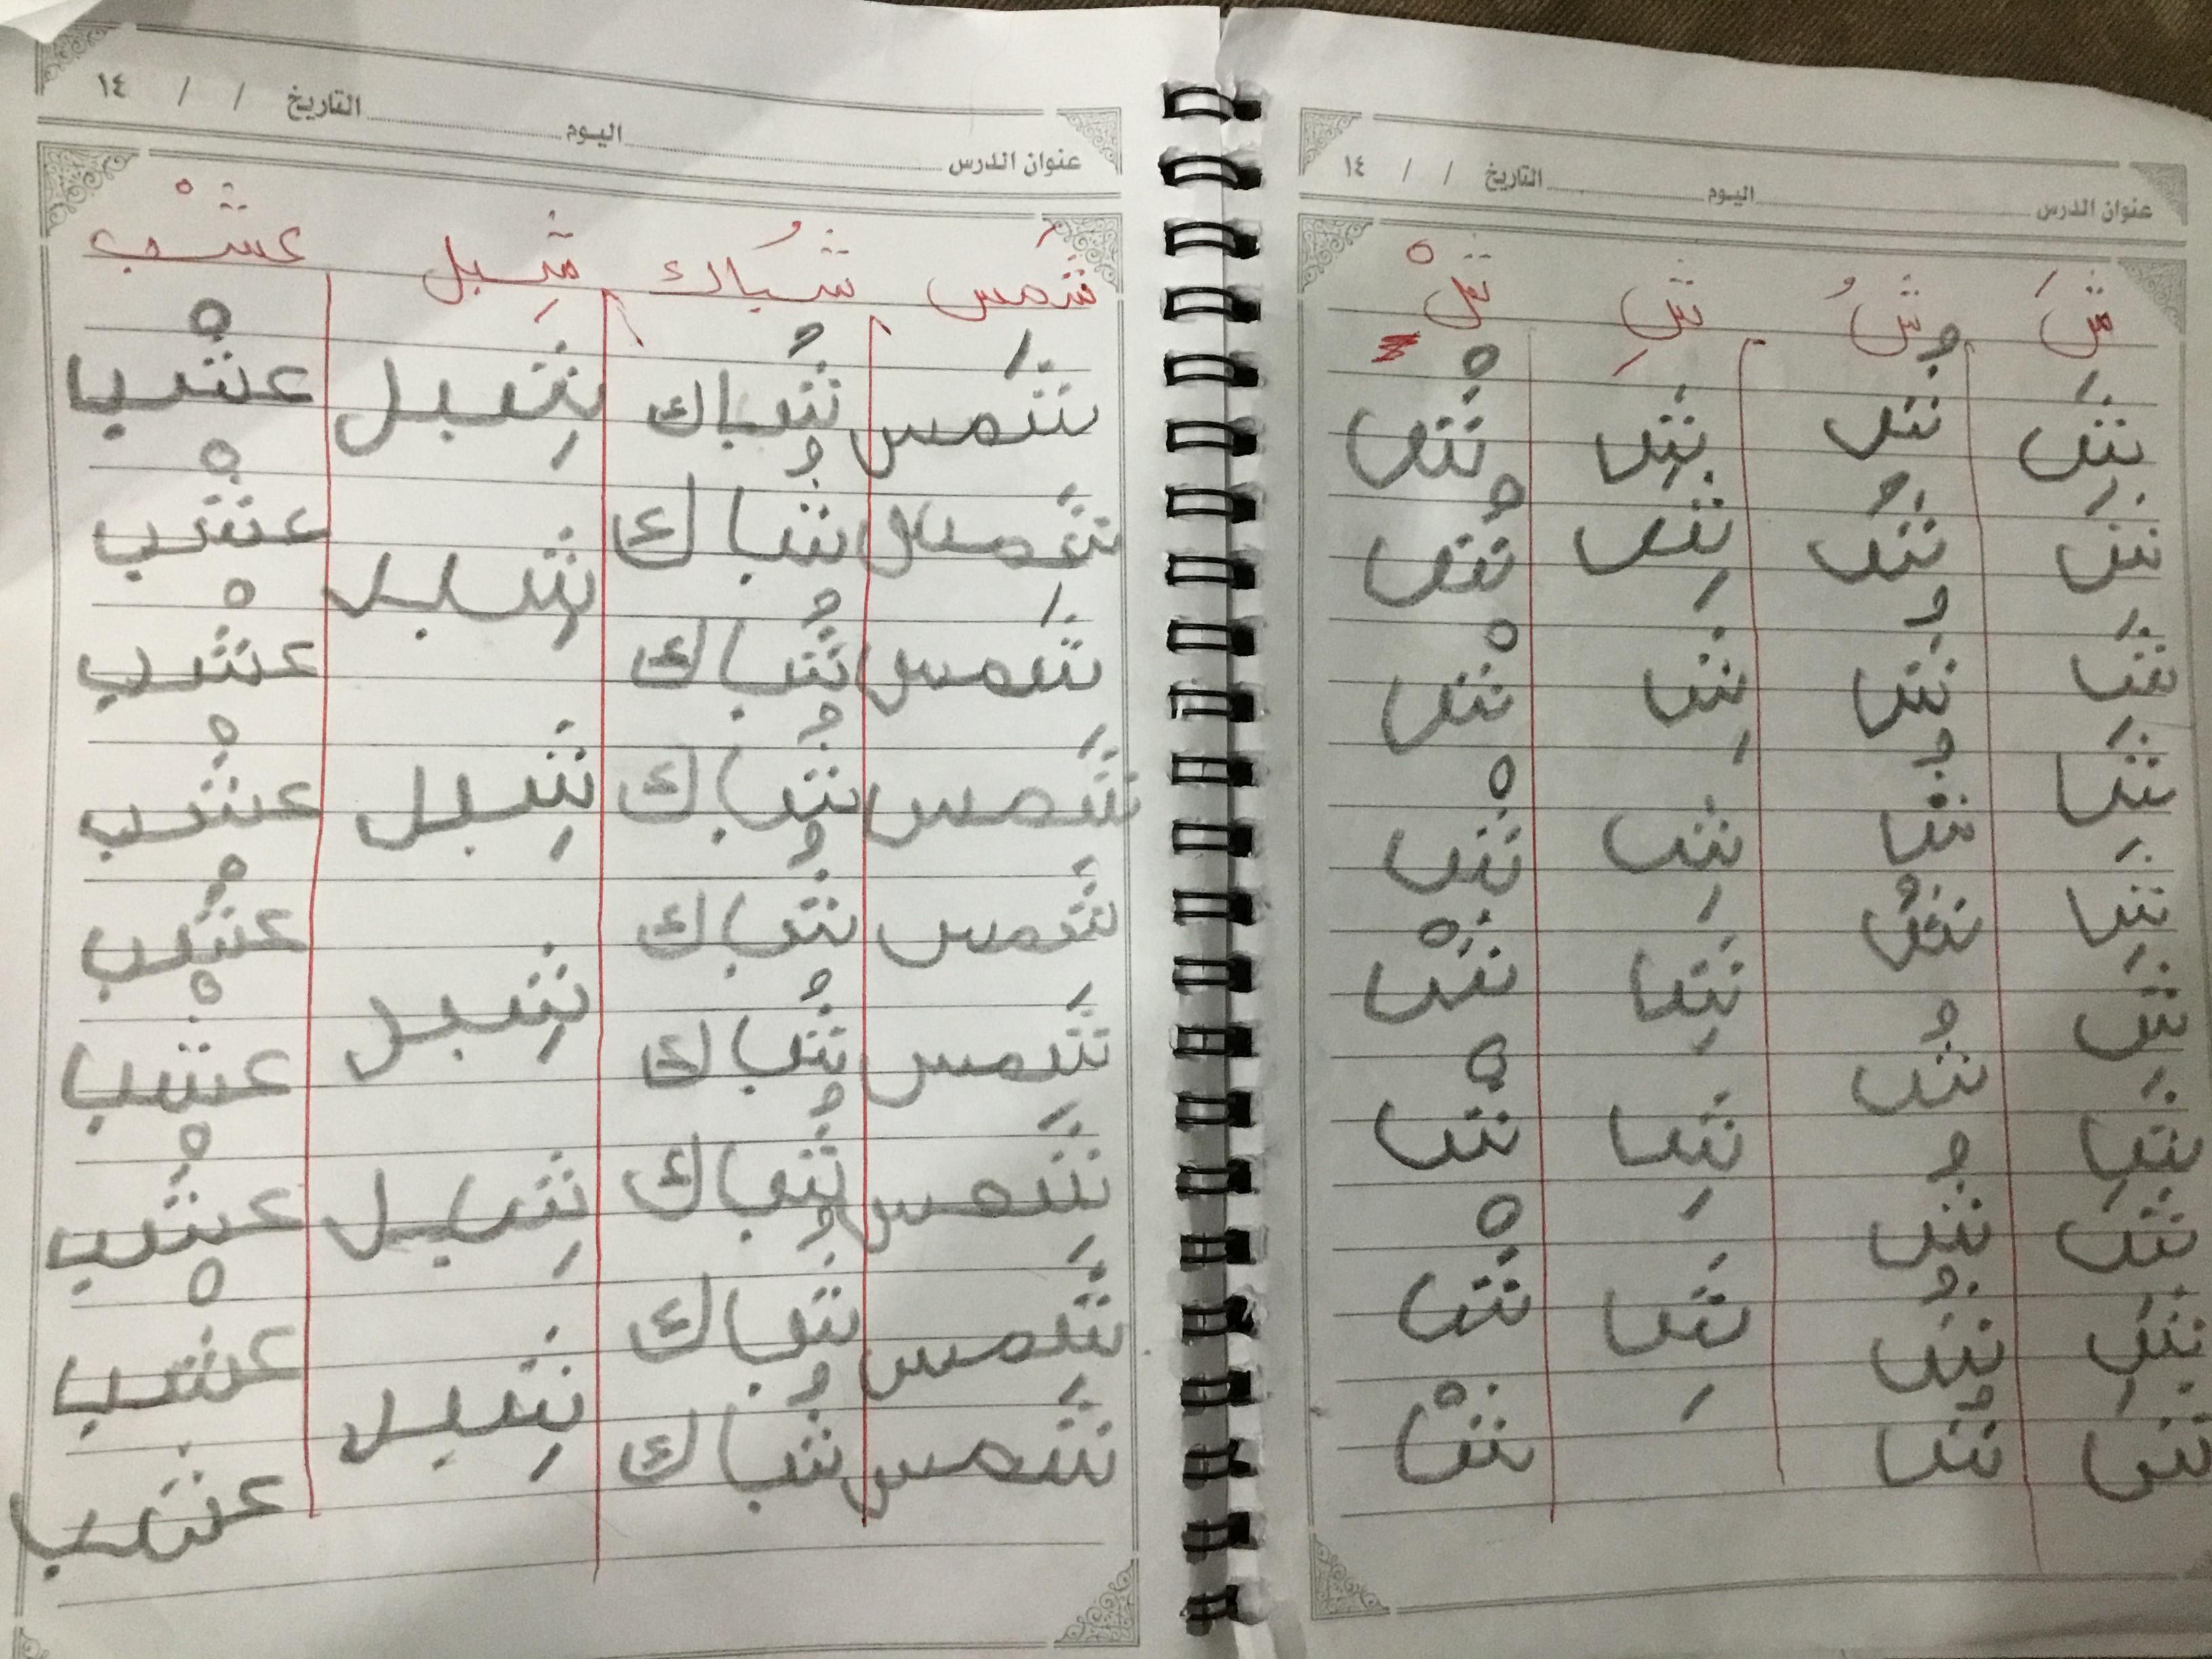 عنوان الدرس اليوم التاريخ / / ١٤
شَ شُ شِ شْ
شَ شُ شِ شْ
شَ شُ شِ شْ
شَ شُ شِ شْ
شَ شُ شِ شْ
شَ شُ شِ شْ
شَ شُ شِ شْ
شَ شُ شِ شْ
شَ شُ شِ شْ
شَ شُ شْ
عنوان الدرس اليوم التاريخ / / ١٤
شَمس شُباك شِبل عشْب
شَمس شُباك شِبل عشْب
شَمس شُباك شِبل عشْب
شَمس شُباك عشْب
شَمس شُباك شِبل عشْب
شَمس شُباك عشْب
شَمس شُباك شِبل عشْب
شَمس شُباك شِبل عشْب
شَمس شُباك عشْب
شَمس شُباك شِبل عشب